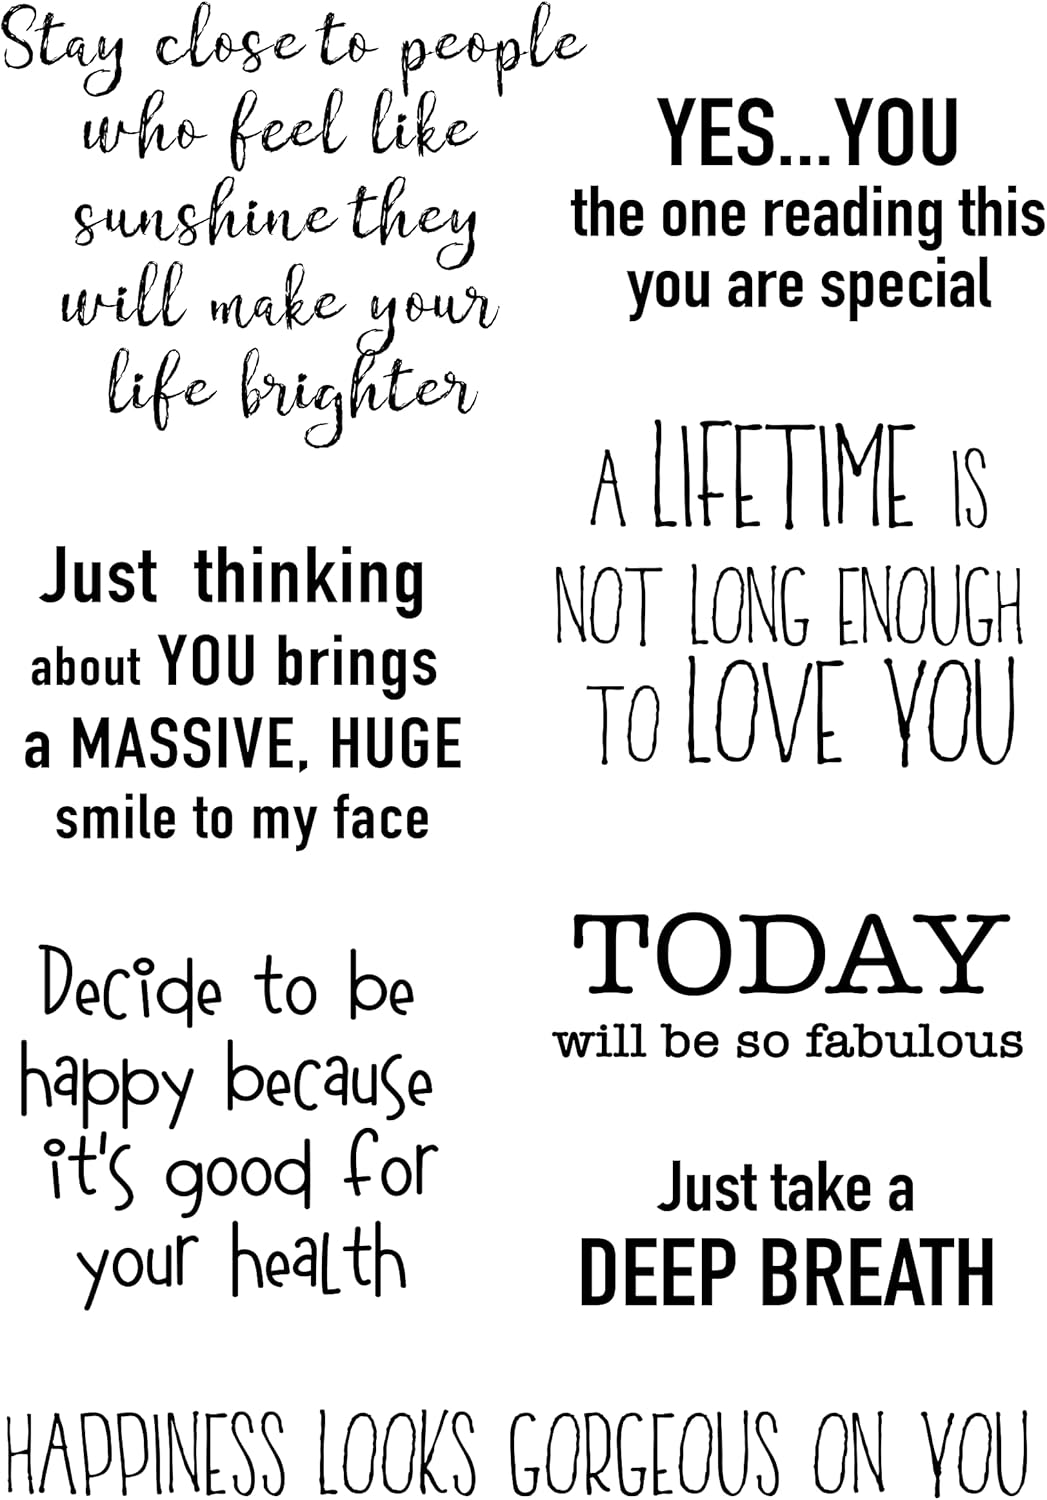 Stay close to people
who feel like
sunshine they
will make your
life brighter
YES...YOU
the one reading this
you are special
A LIFETIME IS
NOT LONG ENOUGH
TO LOVE YOU
Just thinking
about YOU brings
a MASSIVE, HUGE
smile to my face
TODAY
will be so fabulous
Decide to be
happy because
it's good for
your health
Just take a
DEEP BREATH
HAPPINESS LOOKS GORGEOUS ON YOU